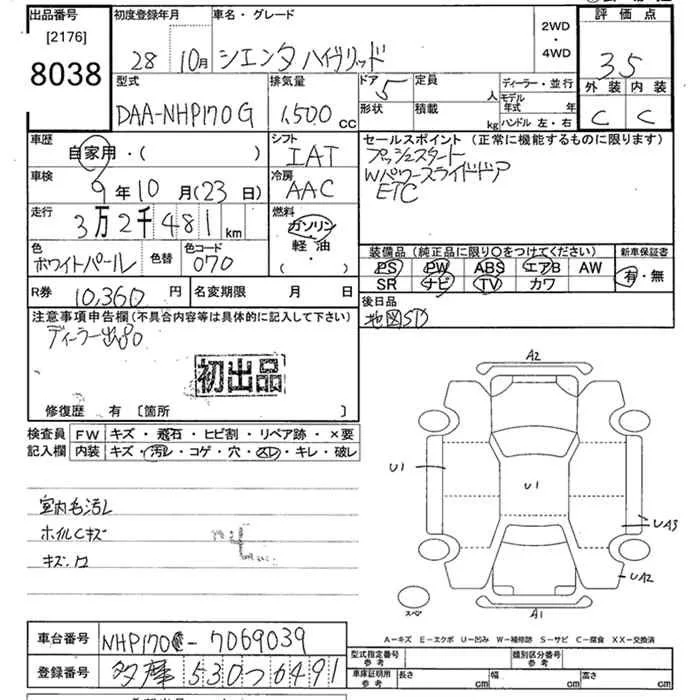 出品番号
[2176]
8038
初度登録年月
28年 10月
車名・グレード
シエンタ ハイブリッド
2WD
・
4WD
評価点
3.5
外装 内装
C C
型式
DAA-NHP170G
排気量
1,500 cc
ドア
5
定員
人
形状
積載
kg
ディーラー・並行
モデル
年式 年
ハンドル 左・右
車歴
自家用・( )
シフト
IAT
冷房
AAC
車検
9年10月(23日)
走行
3万2千481km
燃料
ガソリン
軽油
( ・ )
色
ホワイトパール
色替
色コード
070
R券 10,360 円
名変期限 月 日
セールスポイント(正常に機能するものに限ります)
プッシュスタート
Wパワースライドドア
ETC
装備品(純正品に限り○をつけてください)
PS PW ABS エアB AW
SR ナビ TV カワ
新車保証書
有・無
後日品
地図SD
注意事項申告欄(不具合内容等は具体的に記入して下さい)
ディーラー
初出品
修復歴 有 [箇所 ]
検査員
記入欄
FW キズ・飛石・ヒビ割・リペア跡・×要
内装 キズ・汚レ・コゲ・穴・スレ・キレ・破レ
室内毛汚レ
ホイルCキズ
キズ.
A2
U1
U1
UA3
UA2
A1
スペア
A-キズ E-エクボ U-凹み W-補修跡 S-サビ C-腐食 XX-交換済
車台番号 NHP170-7069039
登録番号 多摩 530 つ 6491
型式指定番号
参考
類別区分番号
参考
車庫証明用
参考
長さ cm 幅 cm 高さ cm